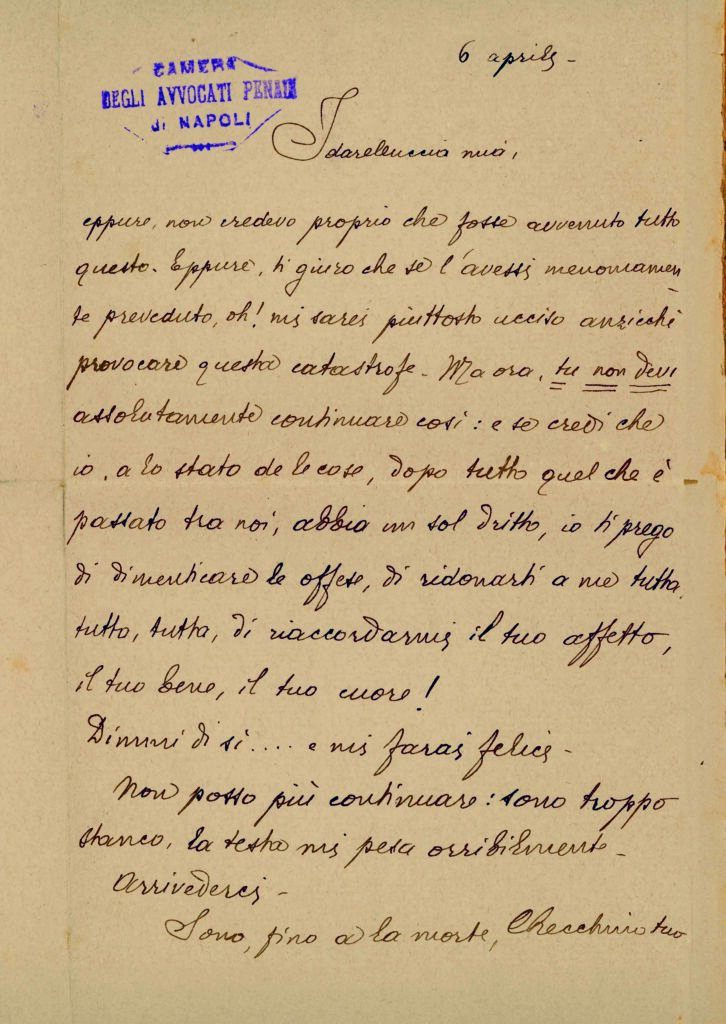 6 aprile -
CAMERA
DEGLI AVVOCATI PENALI
di NAPOLI
Idarelluccia mia,
eppure, non credevo proprio che fosse avvenuto tutto
questo. Eppure, ti giuro che se l'avessi menomamen=
te preveduto, oh! mi sarei piuttosto ucciso anzicchè
provocare questa catastrofe - Ma ora, tu non devi
assolutamente continuare così: e se credi che
io, a lo stato de le cose, dopo tutto quel che è
passato tra noi, abbia un sol dritto, io ti prego
di dimenticare le offese, di ridonarti a me tutta,
tutto, tutta, di riaccordarmi il tuo affetto,
il tuo bene, il tuo cuore!
Dimmi di sì.... e mi farai felice -
Non posso più continuare: sono troppo
stanco, la testa mi pesa orribilmente -
Arrivederci -
Sono, fino a la morte, Checchino tuo